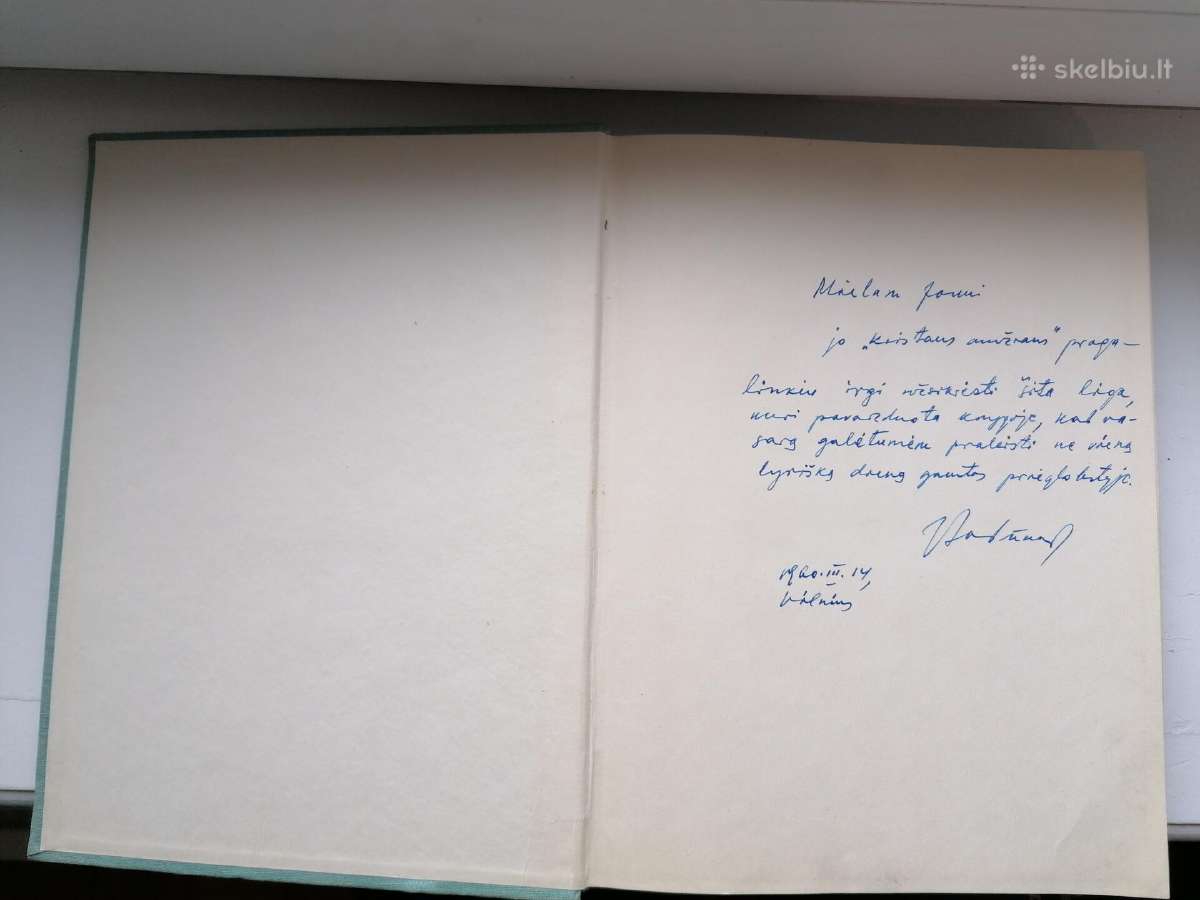 skelbiu.lt
Mielam Jonui
jo „Kristaus amžiaus" proga –
linkiu irgi užsikrėsti šita liga,
kuri pavaizduota knygoje, kad va-
sarą galėtumėm praleisti ne vieną
lyrišką dieną gamtos prieglobstyje.
1960.III.14,
Vilnius